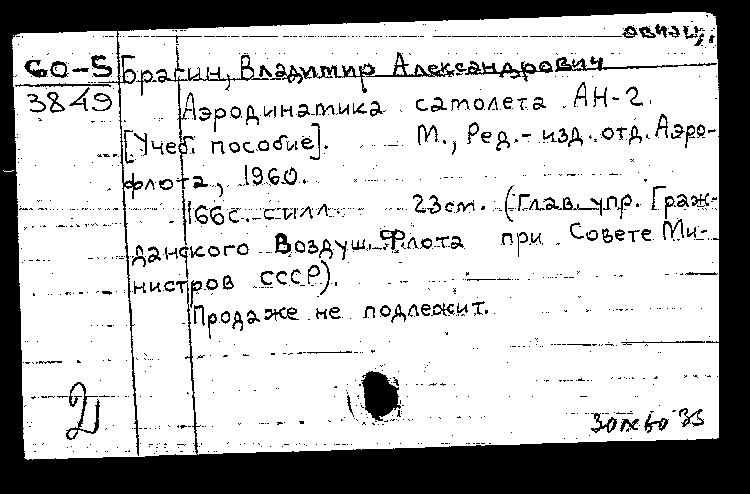 авиац.
60-5 Брагин, Владимир Александрович
3849 Аэродинамика самолета АН-2.
[Учеб. пособие]. М., Ред.-изд. отд. Аэро-
флота, 1960.
166с. с илл. 23см. (Глав. упр. Граж-
данского Воздуш. Флота при Совете Ми-
нистров СССР).
Продаже не подлежит.
2